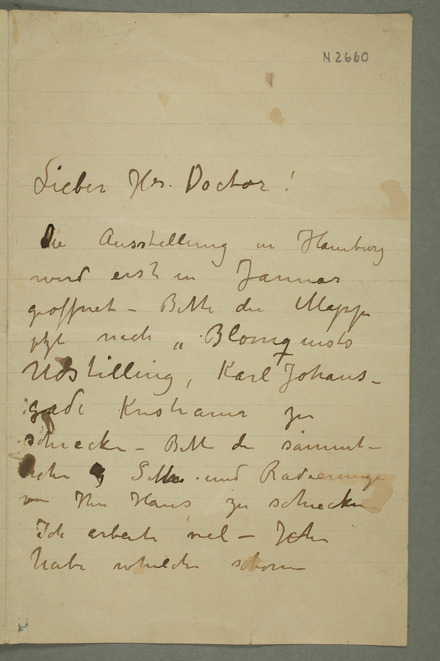 N 2660
Lieber Hr. Doctor!
Die Ausstellung in Hamburg
wird erst in Januar
geöffnet – Bitte die Mappe
jetzt nach „Blomquists
Udstilling, Karl Johans-
gade Kristiania zu
schicken – Bitte die sämmt-
lichen und Radierungen
von Ihr Haus zu schicken
Ich arbeite viel –
habe schon